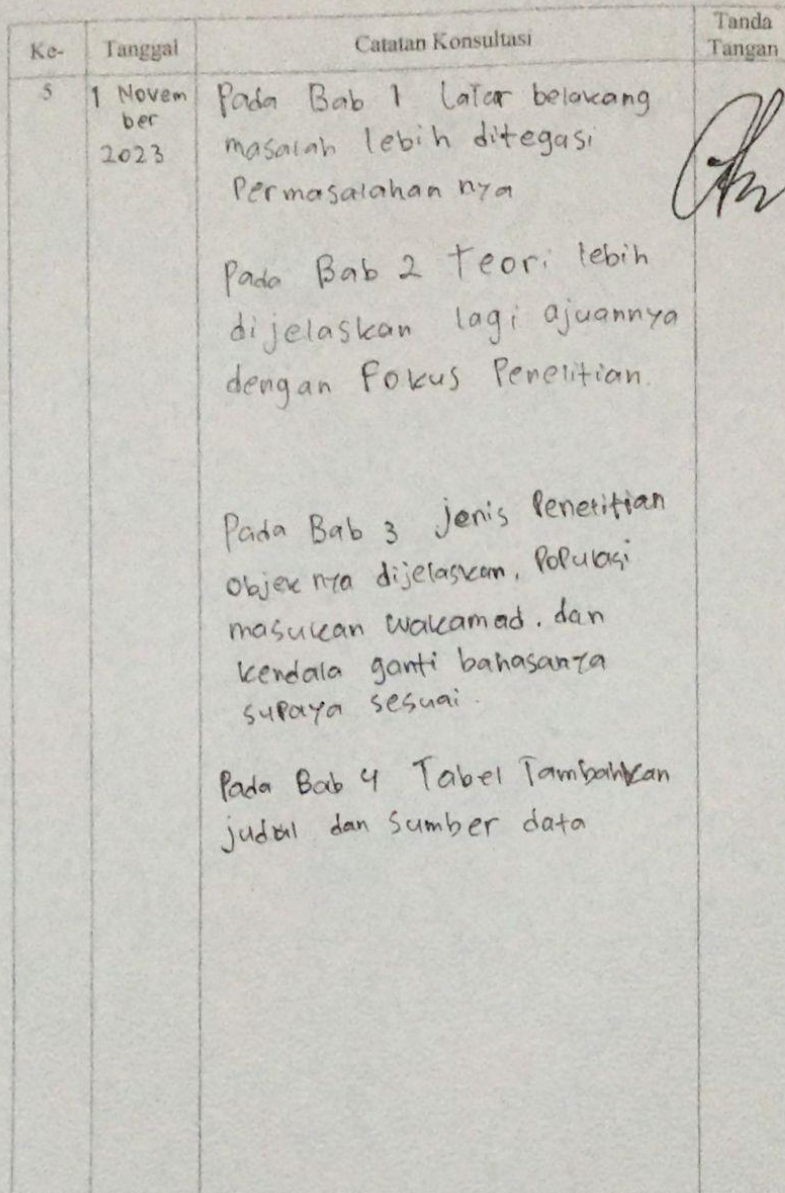 Ke- Tanggal Catatan Konsultasi Tanda Tangan
5 1 November 2023
Pada Bab 1 Latar belakang
masalah lebih ditegasi
Permasalahan nya
Pada Bab 2 Teori lebih
dijelaskan lagi ajuannya
dengan Fokus Penelitian.
Pada Bab 3 jenis Penelitian
objek nya dijelaskan, Populasi
masukan wakamad. dan
kendala ganti bahasanya
supaya sesuai.
Pada Bab 4 Tabel Tambahkan
judul dan Sumber data